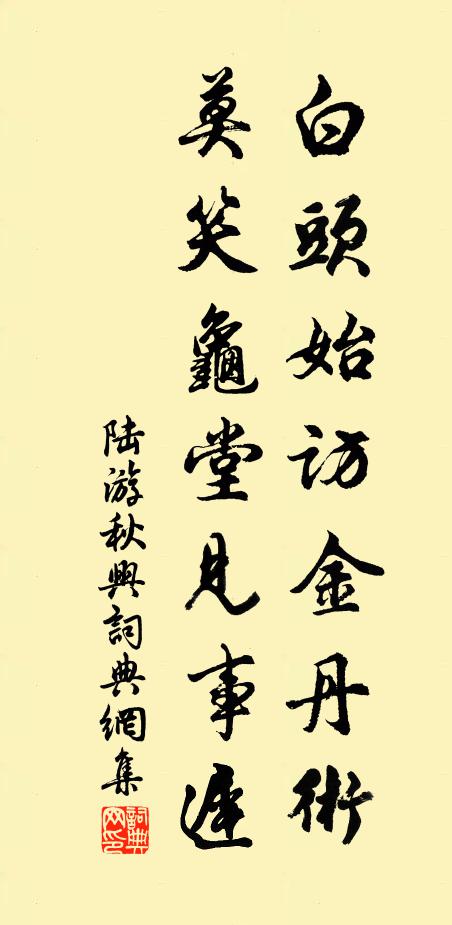 白頭始訪金丹術
莫笑龜堂見事遲
陆游秋興詞典網集
詞典网印